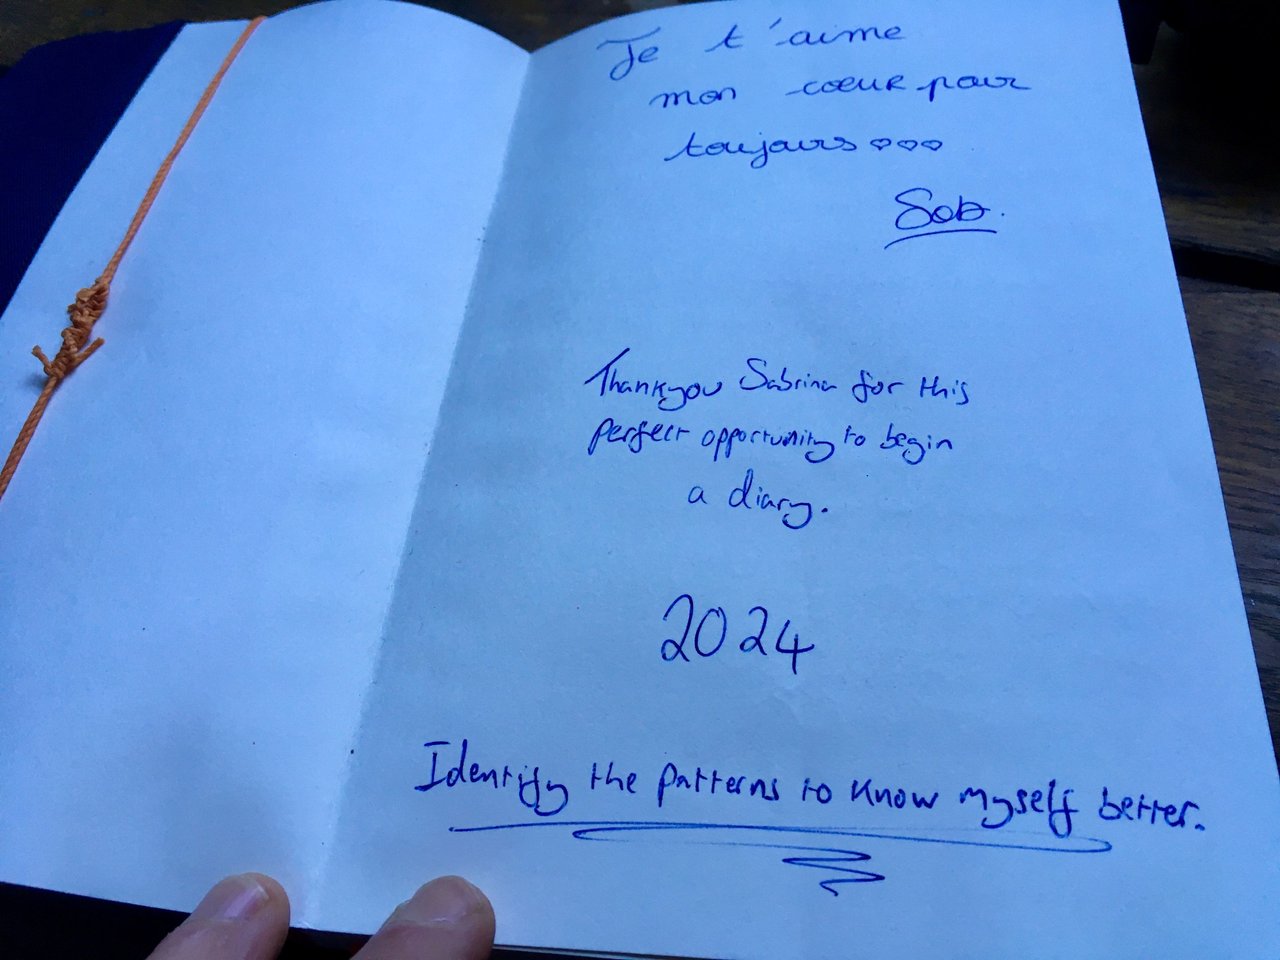 Je t'aime
mon cœur pour
toujours ♡♡♡
Sab.
Thankyou Sabrina for this
perfect opportunity to begin
a diary.
2024
Identify the patterns to know myself better.